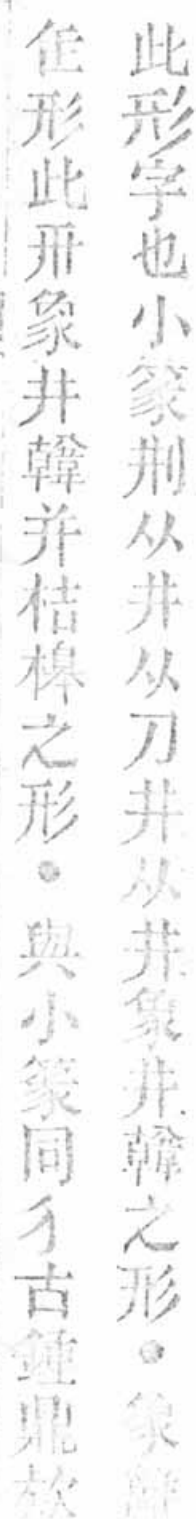 此形字也小篆荆从井从刀井从井象井韓之形●象
形此形象井韓并桔槔之形●與小篆同彳古鐘鼎款